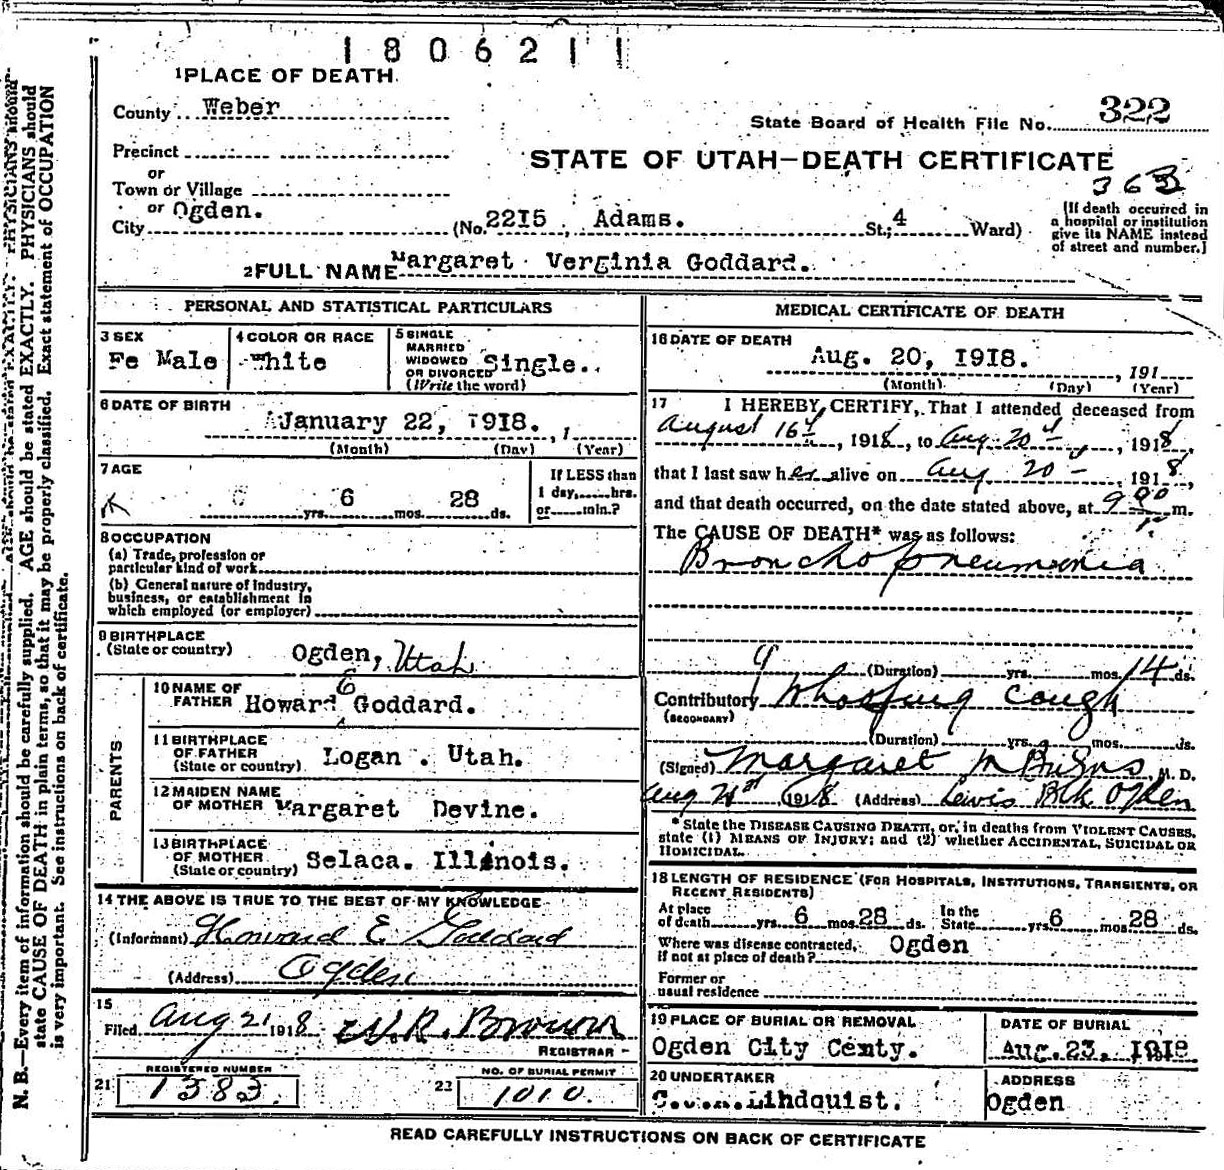 1806211
1 PLACE OF DEATH
County Weber
State Board of Health File No. 322
Precinct
or
STATE OF UTAH—DEATH CERTIFICATE
Town or Village
or
City Ogden. (No. 2215, Adams. St.; 4 Ward)
[If death occurred in
a hospital or institution
give its NAME instead
of street and number.]
2 FULL NAME Margaret Verginia Goddard.
PERSONAL AND STATISTICAL PARTICULARS
3 SEX
Fe Male
4 COLOR OR RACE
White
5 SINGLE
MARRIED
WIDOWED
OR DIVORCED
(Write the word)
Single.
6 DATE OF BIRTH
January 22, 1918. , 1
(Month) (Day) (Year)
7 AGE
yrs. 6 mos. 28 ds.
If LESS than
1 day,......hrs.
or......min.?
8 OCCUPATION
(a) Trade, profession or
particular kind of work
(b) General nature of industry,
business, or establishment in
which employed (or employer)
9 BIRTHPLACE
(State or country) Ogden, Utah
PARENTS
10 NAME OF
FATHER Howard E Goddard.
11 BIRTHPLACE
OF FATHER
(State or country) Logan . Utah.
12 MAIDEN NAME
OF MOTHER Margaret Devine.
13 BIRTHPLACE
OF MOTHER
(State or country) Selaca. Illinois.
14 THE ABOVE IS TRUE TO THE BEST OF MY KNOWLEDGE
(Informant) Howard E Goddard
(Address) Ogden
15
Filed Aug 21 1918 W.R. Brown
REGISTRAR
21 REGISTERED NUMBER
1383
22 NO. OF BURIAL PERMIT
1010.
MEDICAL CERTIFICATE OF DEATH
16 DATE OF DEATH
Aug. 20, 1918.
, 191
(Month) (Day) (Year)
17 I HEREBY CERTIFY, That I attended deceased from
August 16th, 1918, to Aug 20th, 1918,
that I last saw her alive on Aug 20th, 1918,
and that death occurred, on the date stated above, at 9 00 m.
The CAUSE OF DEATH* was as follows:
Broncho pneumonia
(Duration) yrs. mos. 14 ds.
Contributory Whooping Cough
(SECONDARY)
(Duration) yrs. mos. ds.
(Signed) Margaret M Burns, M. D.
Aug 21st 1918 (Address) Lewis Blk Ogden
*State the DISEASE CAUSING DEATH, or, in deaths from VIOLENT CAUSES,
state (1) MEANS OF INJURY; and (2) whether ACCIDENTAL, SUICIDAL OR
HOMICIDAL.
18 LENGTH OF RESIDENCE (FOR HOSPITALS, INSTITUTIONS, TRANSIENTS, OR
RECENT RESIDENTS)
At place
of death yrs. 6 mos. 28 ds. In the
State yrs. 6 mos. 28 ds.
Where was disease contracted,
if not at place of death? Ogden
Former or
usual residence
19 PLACE OF BURIAL OR REMOVAL
Ogden City Cemty.
DATE OF BURIAL
Aug. 23, 1918
20 UNDERTAKER
Lindquist.
ADDRESS
Ogden
READ CAREFULLY INSTRUCTIONS ON BACK OF CERTIFICATE
N. B.—Every item of information should be carefully supplied. AGE should be stated EXACTLY. PHYSICIANS should
state CAUSE OF DEATH in plain terms, so that it may be properly classified. Exact statement of OCCUPATION
is very important. See instructions on back of certificate.